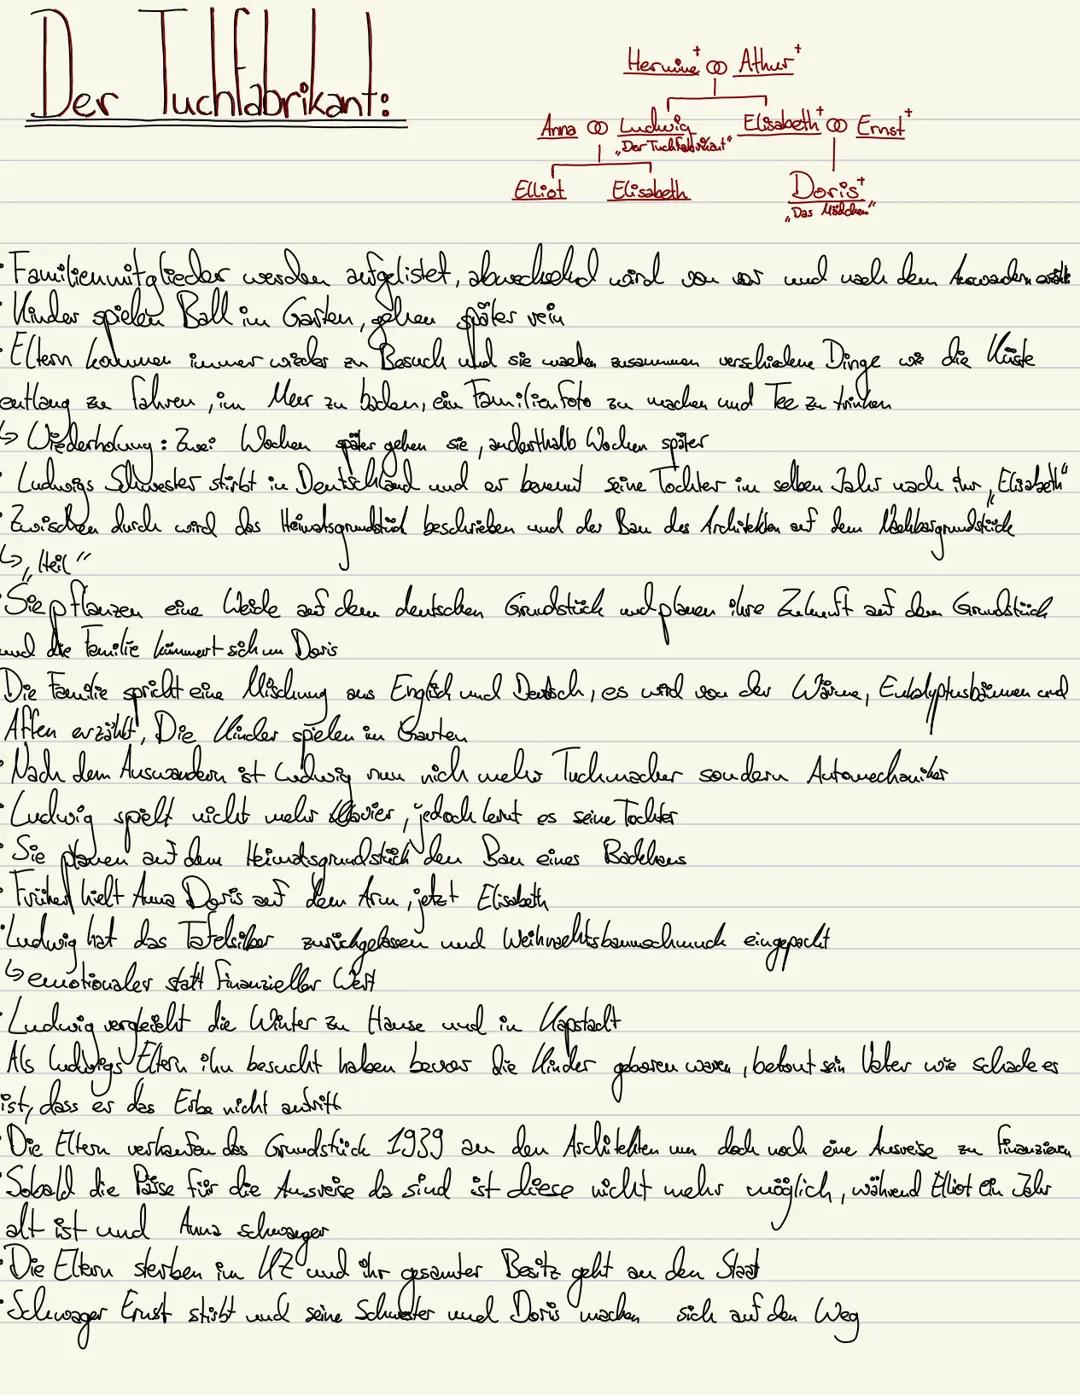 Der Tuchfabrikant:
Hermine⁺ ⚭ Athur⁺
Anna ⚭ Ludwig Elisabeth⁺ ⚭ Ernst⁺
„Der Tuchfabrikant“
Elliot Elisabeth Doris⁺
„Das Mädchen“
· Familienmitglieder werden aufgelistet, abwechselnd wird von vor und nach dem Auswandern erzählt
· Kinder spielen Ball im Garten, gehen später rein
· Eltern kommen immer wieder zu Besuch und sie machen zusammen verschiedene Dinge wie die Küste
entlang zu fahren, im Meer zu baden, ein Familienfoto zu machen und Tee zu trinken
↳ Wiederholung: Zwei Wochen später gehen sie, anderthalb Wochen später
· Ludwigs Schwester stirbt in Deutschland und er benennt seine Tochter im selben Jahr nach ihr „Elisabeth“
· Zwischen durch wird das Heimatsgrundstück beschrieben und der Bau des Architekten auf dem Nachbargrundstück
↳ „Heil“
· Sie pflanzen eine Weide auf dem deutschen Grundstück und planen ihre Zukunft auf dem Grundstück
und die Familie kümmert sich um Doris
Die Familie spricht eine Mischung aus Englisch und Deutsch, es wird von der Wärme, Eukalyptusbäumen und
Affen erzählt, Die Kinder spielen im Garten
· Nach dem Auswandern ist Ludwig nun nich mehr Tuchmacher sondern Automechaniker
· Ludwig spielt nicht mehr Klavier, jedoch lernt es seine Tochter
· Sie planen auf dem Heimatsgrundstück den Bau eines Badehaus
· Früher hielt Anna Doris auf dem Arm, jetzt Elisabeth
· Ludwig hat das Tafelsilber zurückgelassen und Weihnachtsbaumschmuck eingepackt
↳ emotionaler statt finanzieller Wert
· Ludwig vergleicht die Winter zu Hause und in Kapstadt
Als Ludwigs Eltern ihn besucht haben bevor die Kinder geboren waren, betont sein Vater wie schade es
ist, dass er das Erbe nicht antritt
· Die Eltern verkaufen das Grundstück 1939 an den Architekten um doch noch eine Ausreise zu finanzieren
· Sobald die Pässe für die Ausreise da sind ist diese nicht mehr möglich, während Elliot ein Jahr
alt ist und Anna schwanger
· Die Eltern sterben im KZ und ihr gesamter Besitz geht an den Staat
· Schwager Ernst stirbt und seine Schwester und Doris machen sich auf den Weg